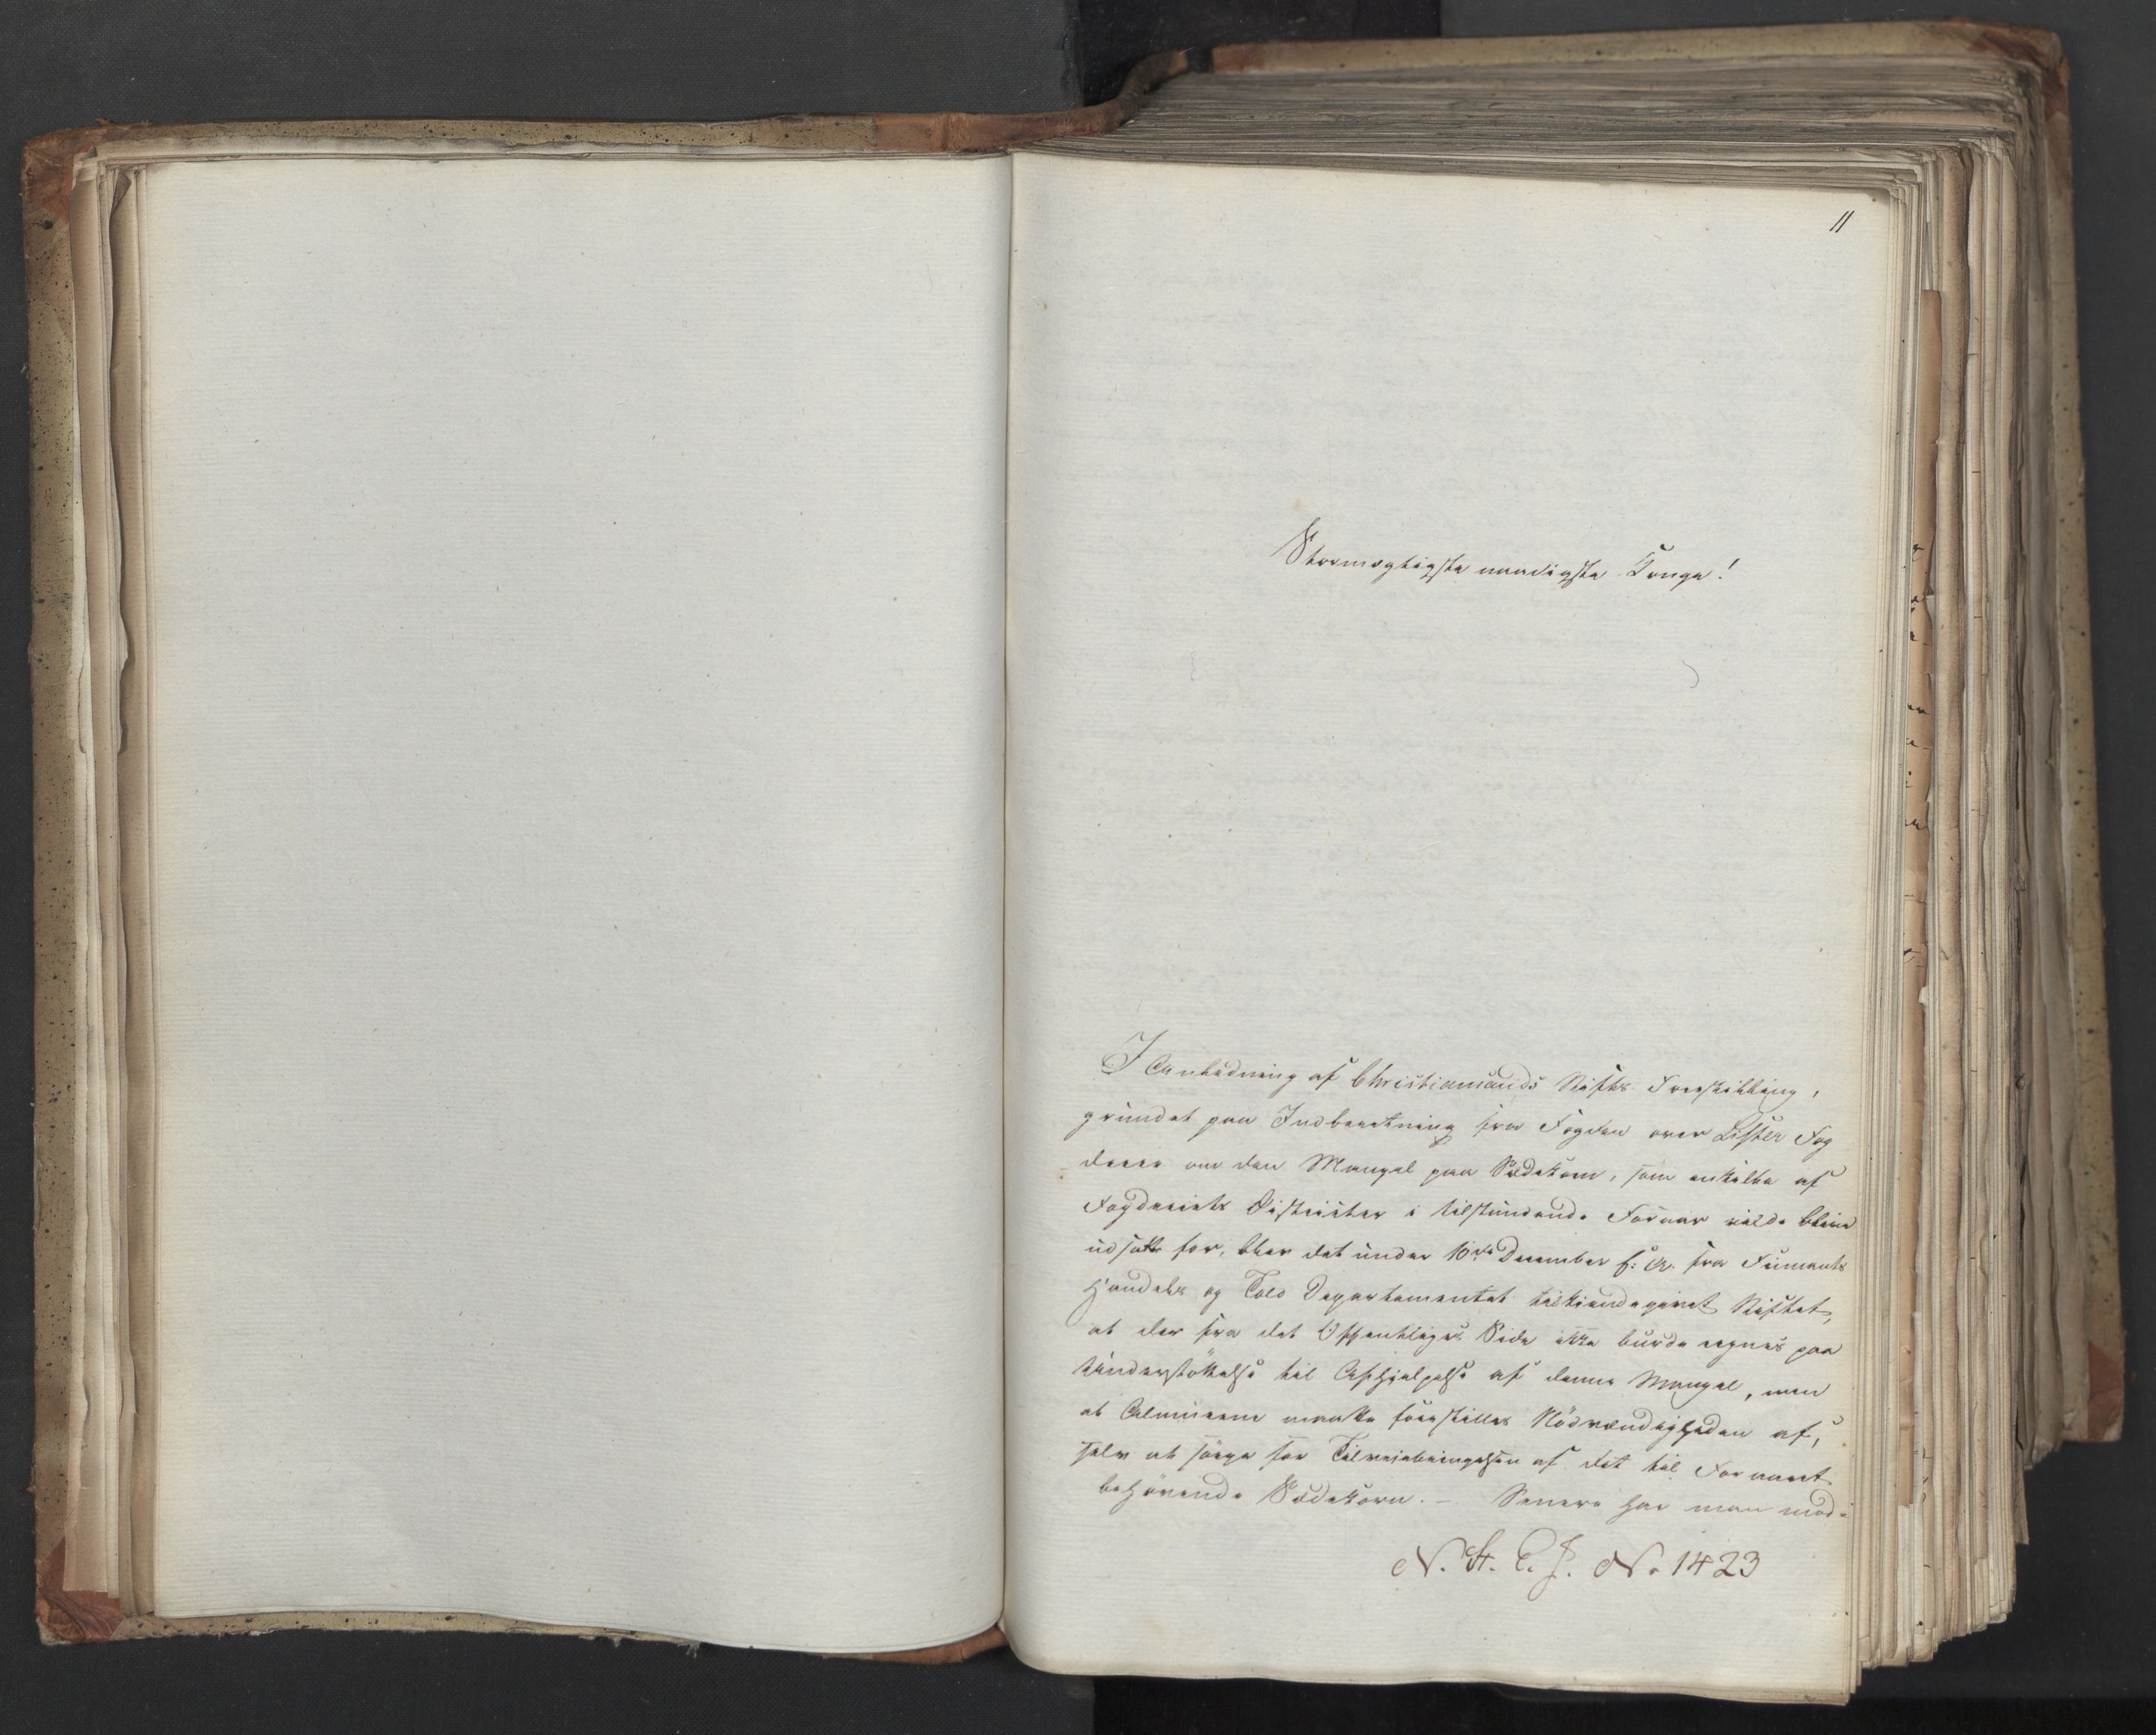 11
Stormægtigste naadigste Konge!
I Anledning af Christiansands Stifts Forestilling,
grundet paa Indberetning fra Fogden over Lister Fog
derie om den Mangel paa Sædekorn, som enkelte af
Fogderiets Districter i tilstundende Foraar vilde blive
udsatte for, blev det under 10de December f: A. fra Finants
Handels og Told Departementet tilkiendegivet Stiftet,
at der fra det Offentliges Side ikke burde regnes paa
Understöttelse til Afhjelpelse af denne Mangel, men
at Almuerne maatte forestilles Nödvendigheden af,
selv at sörge for Tilveiebringelsen af det til Foraaret
behövende Sædekorn. – Senere har man mod-
N. St. E. J. No 1423